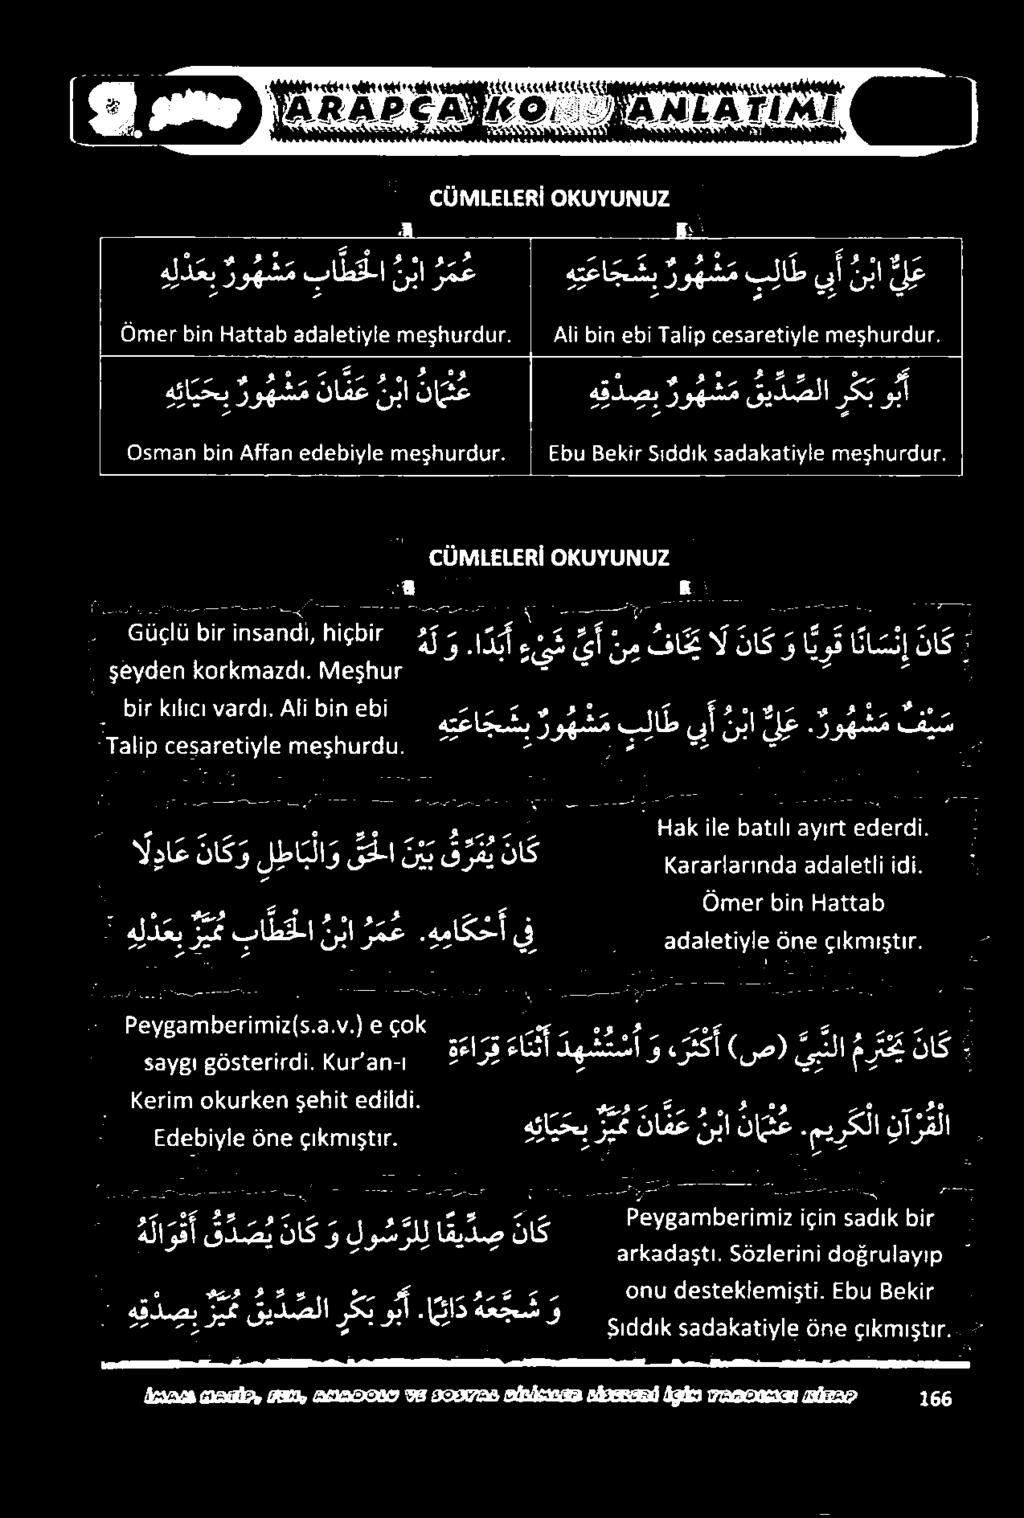 9. ARAPÇA KONU ANLATIMI
CÜMLELERİ OKUYUNUZ
عُمَرُ ابْنُ الْخَطَّابِ مَشْهُورٌ بِعَدْلِهِ
Ömer bin Hattab adaletiyle meşhurdur.
عَلِيٌّ ابْنُ أَبِي طَالِبٍ مَشْهُورٌ بِشَجَاعَتِهِ
Ali bin ebi Talip cesaretiyle meşhurdur.
عُثْمَانُ ابْنُ عَفَّانَ مَشْهُورٌ بِحَيَائِهِ
Osman bin Affan edebiyle meşhurdur.
أَبُو بَكْرٍ الصِّدِّيقُ مَشْهُورٌ بِصِدْقِهِ
Ebu Bekir Sıddık sadakatiyle meşhurdur.
CÜMLELERİ OKUYUNUZ
Güçlü bir insandı, hiçbir
şeyden korkmazdı. Meşhur
bir kılıcı vardı. Ali bin ebi
Talip cesaretiyle meşhurdu.
كَانَ إِنْسَانًا قَوِيًّا وَ كَانَ لَا يَخَافُ مِنْ أَيِّ شَيْءٍ أَبَدًا. وَ لَهُ
سَيْفٌ مَشْهُورٌ. عَلِيٌّ ابْنُ أَبِي طَالِبٍ مَشْهُورٌ بِشَجَاعَتِهِ
كَانَ يُفَرِّقُ بَيْنَ الْحَقِّ وَالْبَاطِلِ وَكَانَ عَادِلًا
فِي أَحْكَامِهِ. عُمَرُ ابْنُ الْخَطَّابِ مُمَيَّزٌ بِعَدْلِهِ
Hak ile batılı ayırt ederdi.
Kararlarında adaletli idi.
Ömer bin Hattab
adaletiyle öne çıkmıştır.
Peygamberimiz(s.a.v.) e çok
saygı gösterirdi. Kur'an-ı
Kerim okurken şehit edildi.
Edebiyle öne çıkmıştır.
كَانَ يَحْتَرِمُ النَّبِيَّ (ص) أَكْثَرَ، وَ اُسْتُشْهِدَ أَثْنَاءَ قِرَاءَةِ
الْقُرْآنِ الْكَرِيمِ. عُثْمَانُ ابْنُ عَفَّانَ مُمَيَّزٌ بِحَيَائِهِ
كَانَ صِدِيقًا لِلرَّسُولِ وَ كَانَ يُصَدِّقُ أَقْوَالَهُ
وَ شَجَّعَهُ دَائِمًا. أَبُو بَكْرٍ الصِّدِّيقُ مُمَيَّزٌ بِصِدْقِهِ
Peygamberimiz için sadık bir
arkadaştı. Sözlerini doğrulayıp
onu desteklemişti. Ebu Bekir
Sıddık sadakatiyle öne çıkmıştır.
İMAM HATİP, FEN, ANADOLU VE SOSYAL BİLİMLER LİSELERİ İÇİN YARDIMCI KİTAP 166